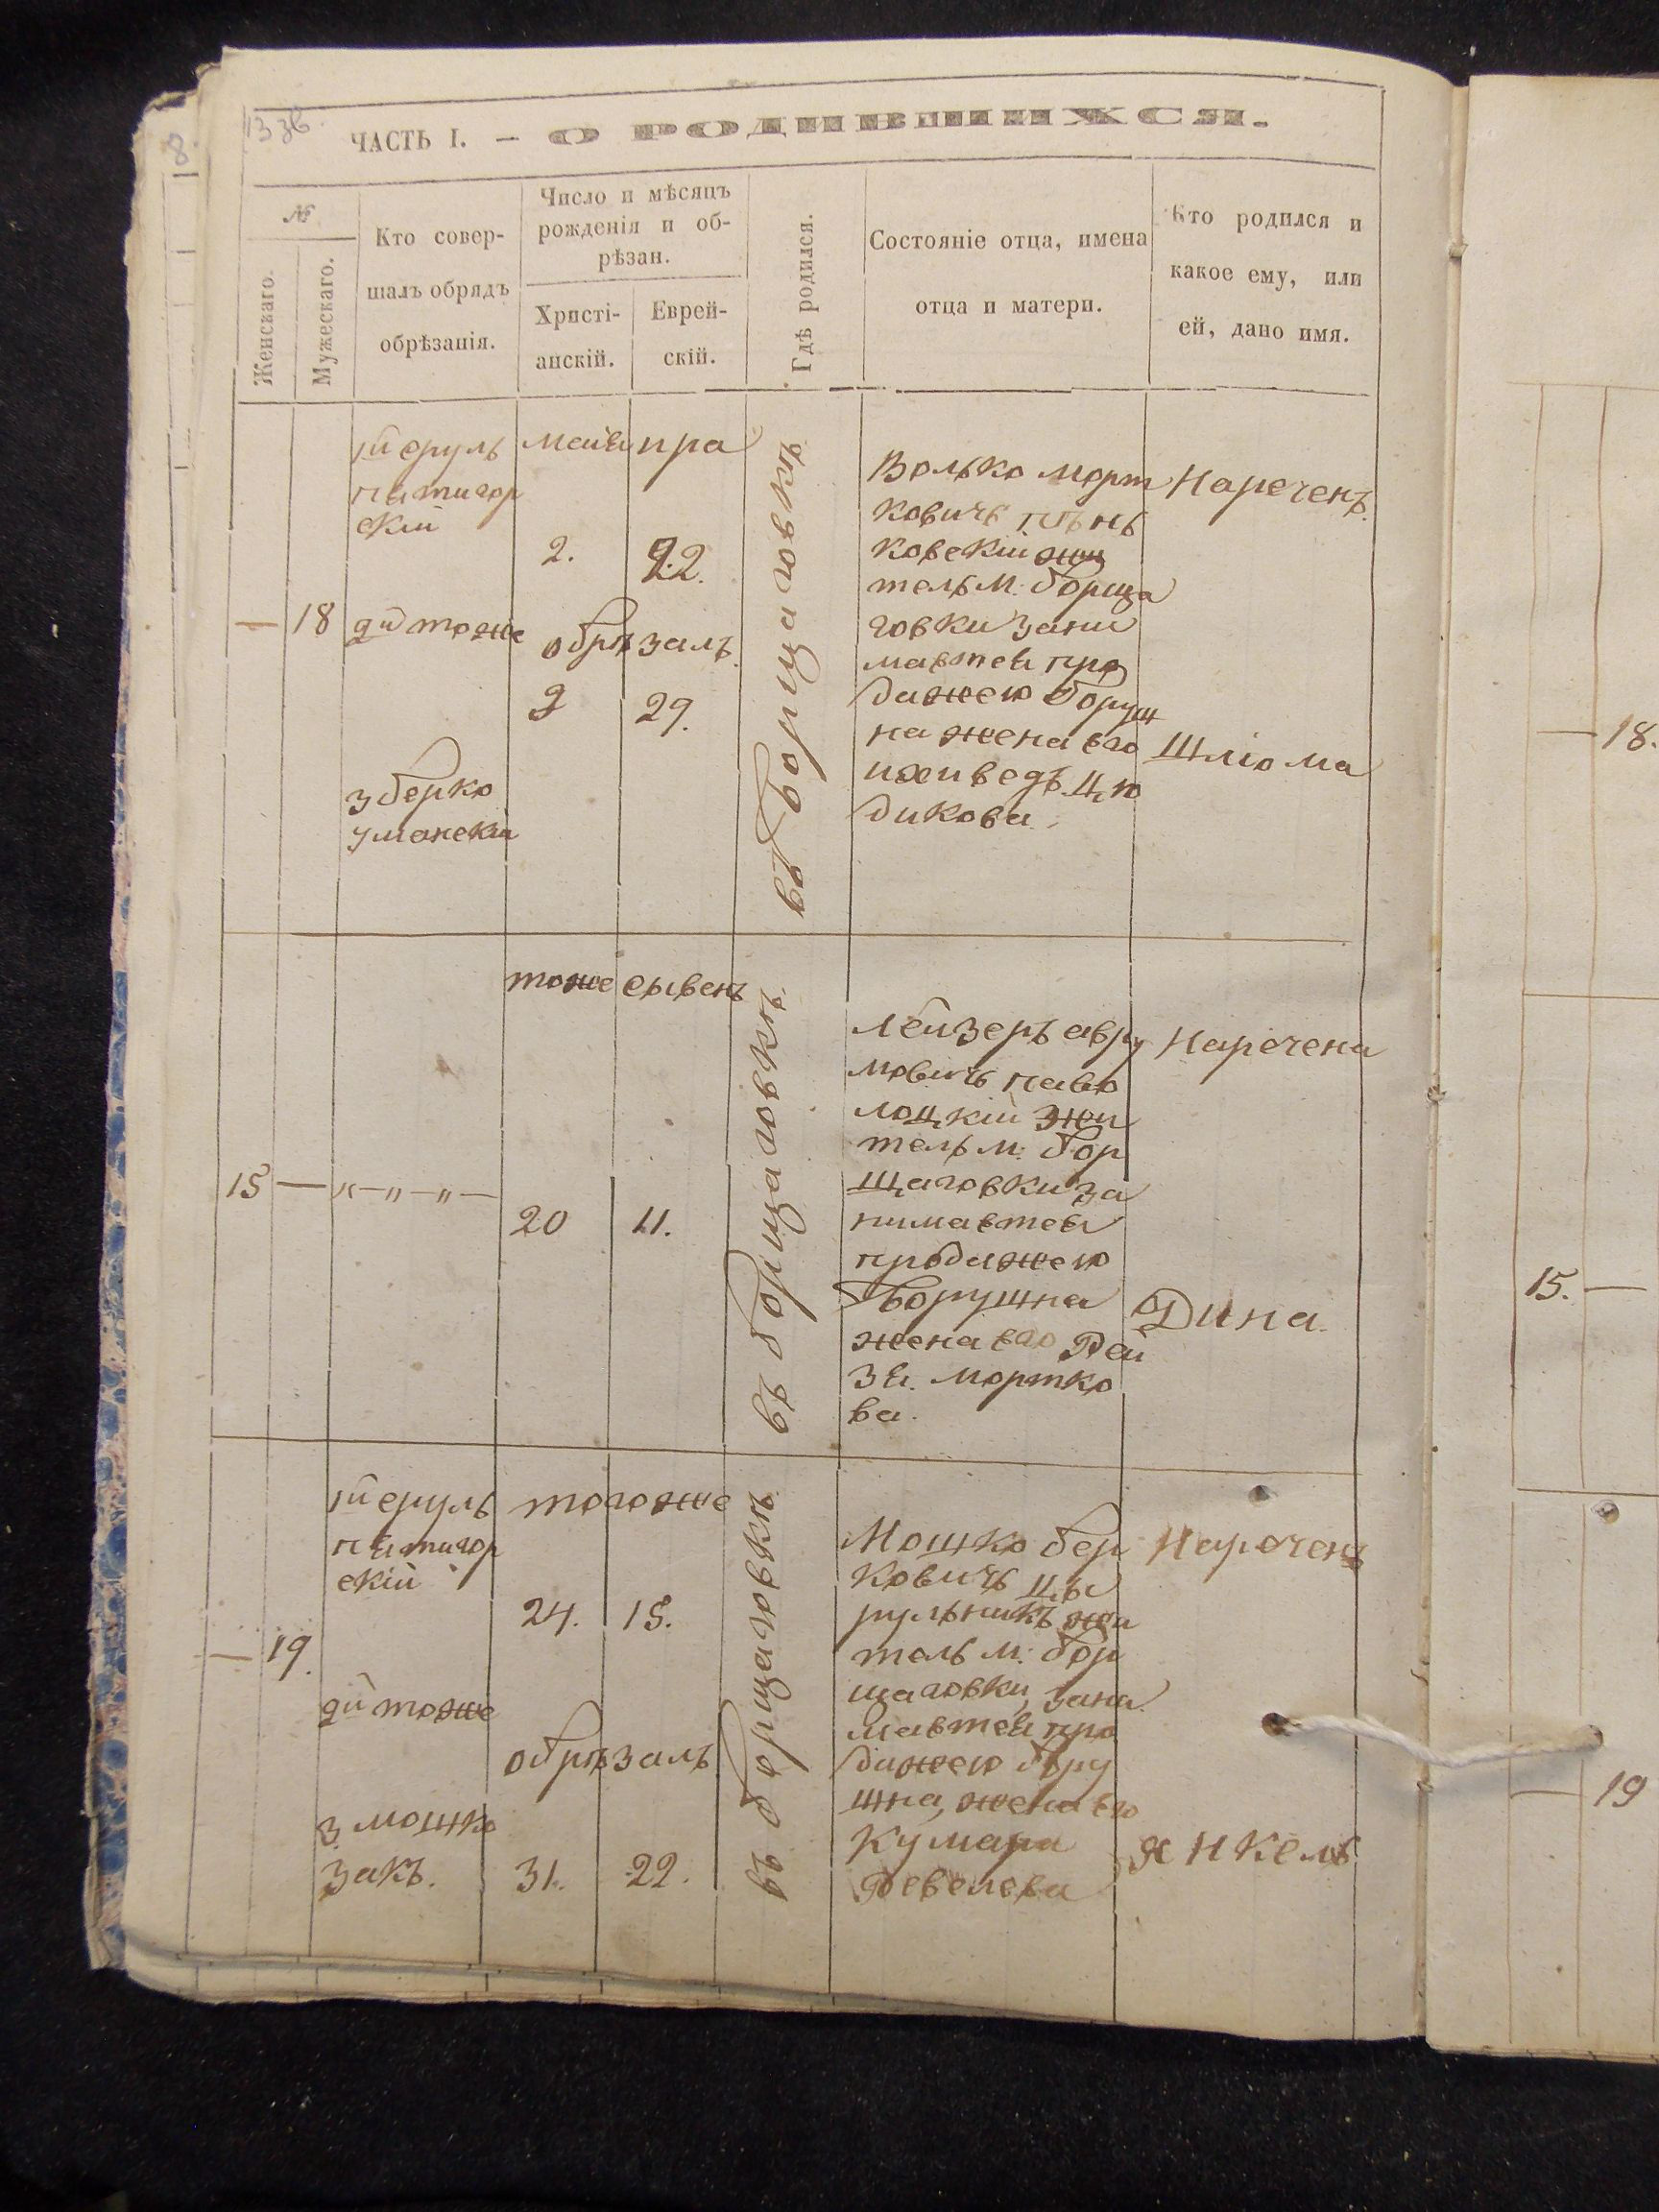 8.
13 зв.
ЧАСТЬ I. — О РОДИВШИХСЯ.
№
Женскаго.
Мужескаго.
Кто совер-
шалъ обрядъ
обрѣзанія.
Число и мѣсяцъ
рожденія и об-
рѣзан.
Христі-
анскій.
Еврей-
скій.
Гдѣ родился.
Состояніе отца, имена
отца и матери.
Кто родился и
какое ему, или
ей, дано имя.
— 18
1й сруль
пятигор
скій
2й тоже
3 берко
уманскій
мая
2.
обрѣзалъ.
9
22.
29.
въ борщаговкѣ
Волько морт
ковичъ
ковскій жи
тель м. борща
говки зани
мается про
дажею
на жена его
дикова.
Нареченъ
Шліома
15 —
„—„—„—
тоже
20
сывенъ
11.
въ борщаговкѣ
Лейзеръ авру
мовичъ паво
лоцкій жи
тель м. бор
щаговки за
нимается
продажею
борушна
жена его Рей
зя. мортко
ва.
Наречена
Дина.
— 19.
1й сруль
пятигор
скій
2й тоже
3. мошко
закъ.
тогоже
24.
15.
обрѣзалъ
31.
22.
въ борщаговкѣ
Мошко бер
ковичъ цы
рульникъ жи
тель м. бор
щаговки, зани
мается про
дажею бору
шна, жена его
Нареченъ
Янкель
18.
15. —
— 19